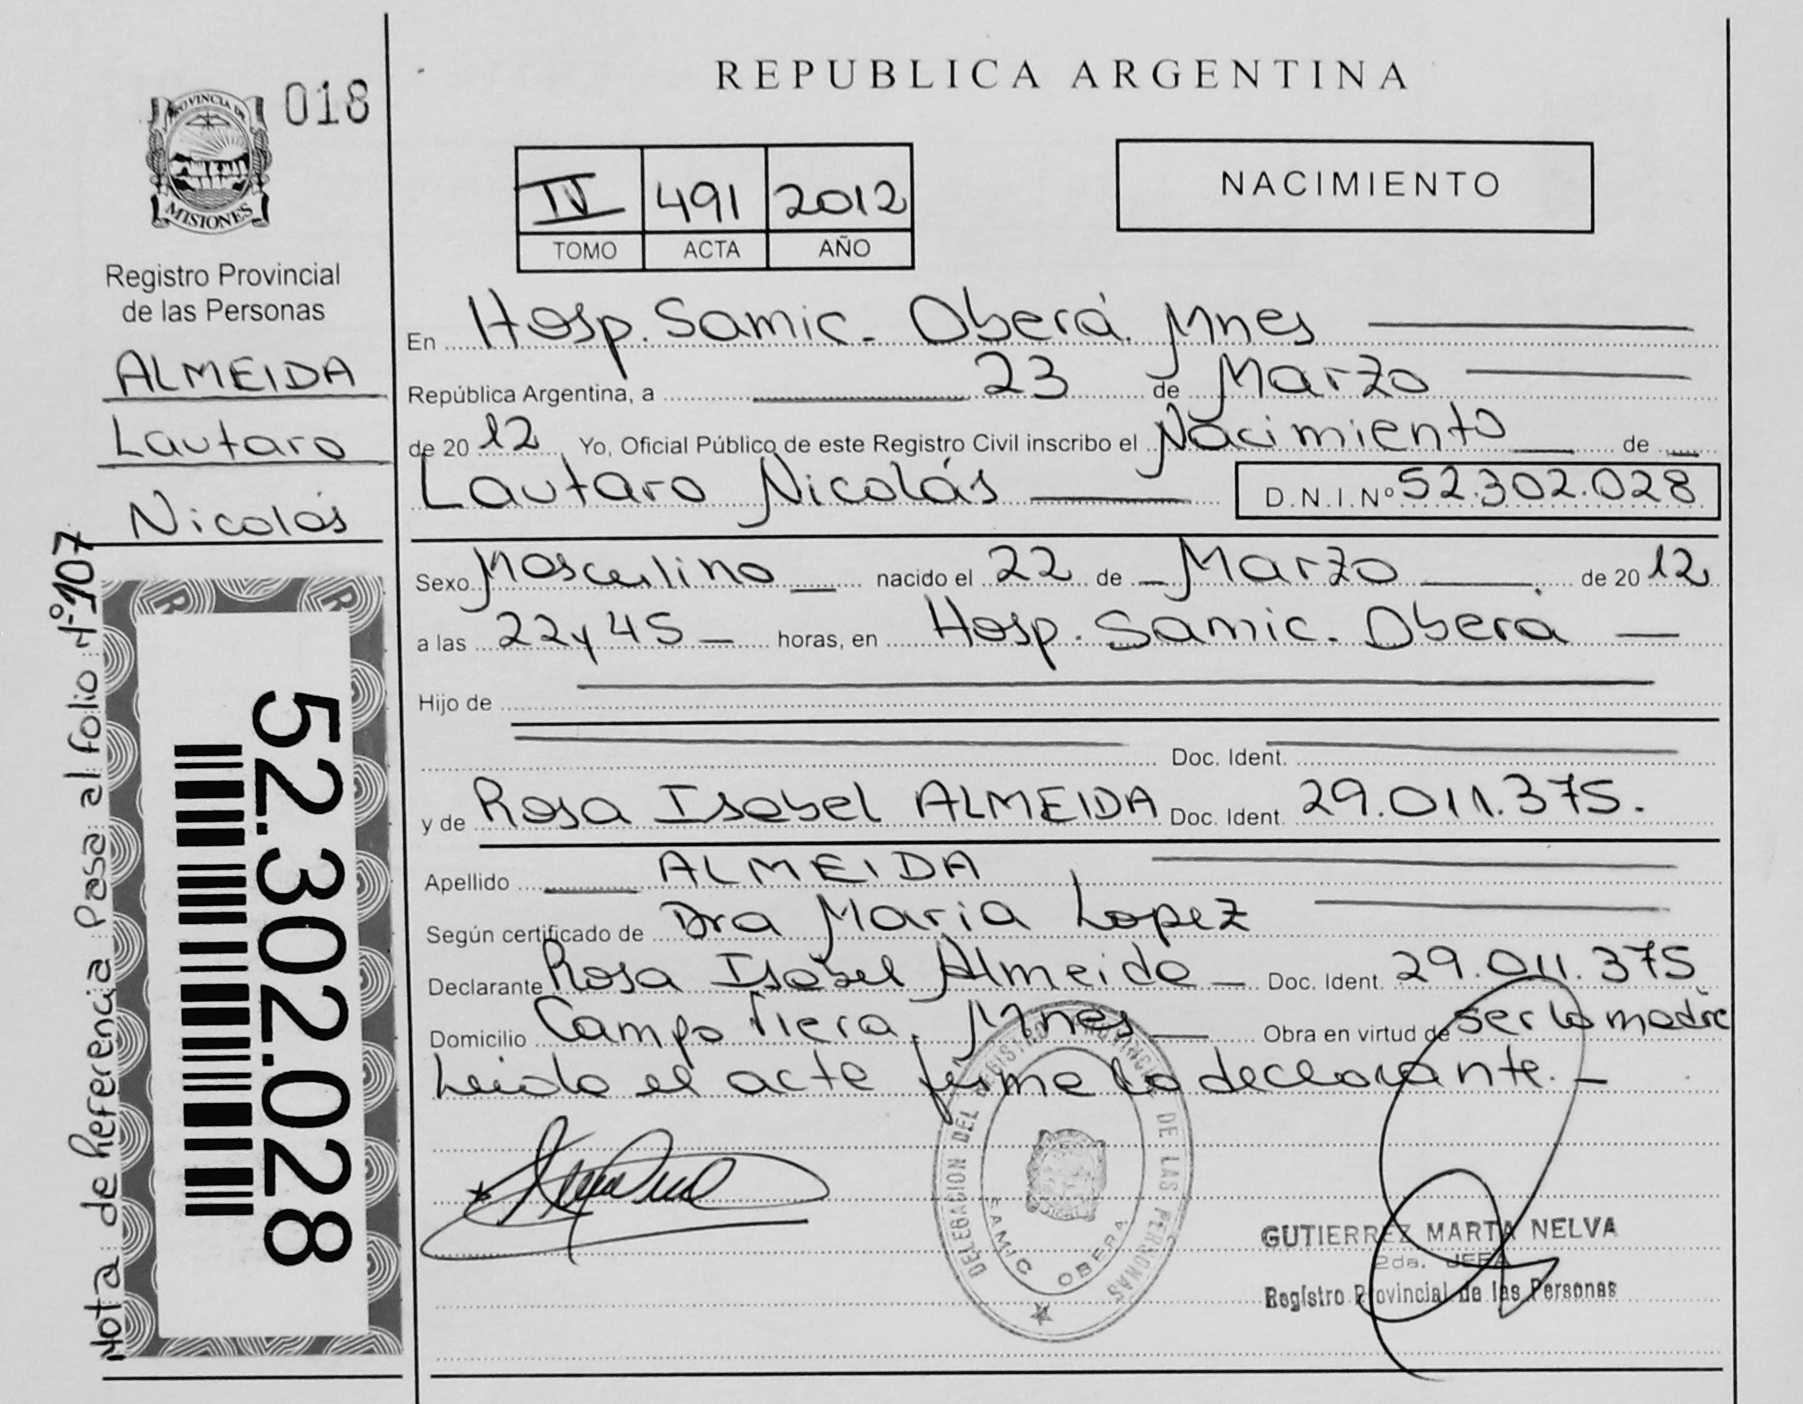 018
PROVINCIA DE
MISIONES
Registro Provincial
de las Personas
ALMEIDA
Lautaro
Nicolás
Nota de Referencia Pasa al folio Nº 107
52.302.028
REPUBLICA ARGENTINA
IV 491 2012
TOMO ACTA AÑO
NACIMIENTO
En Hosp. Samic. Oberá. Mnes
República Argentina, a 23 de Marzo
de 20 12 Yo, Oficial Público de este Registro Civil inscribo el Nacimiento de
Lautaro Nicolás D.N.I.Nº 52.302.028
Sexo Masculino nacido el 22 de Marzo de 20 12
a las 22 y 45 horas, en Hosp. Samic. Oberá
Hijo de
Doc. Ident.
y de Rosa Isabel ALMEIDA Doc. Ident. 29.011.375.
Apellido ALMEIDA
Según certificado de Dra Maria Lopez
Declarante Rosa Isabel Almeida Doc. Ident. 29.011.375
Domicilio Campo Viera, Mnes Obra en virtud de ser la madre
Leida el acta firma la declarante.
DELEGACION DEL REGISTRO PROVINCIAL DE LAS PERSONAS
SAMIC OBERA
GUTIERREZ MARTA NELVA
2da. JEFA
Registro Provincial de las Personas